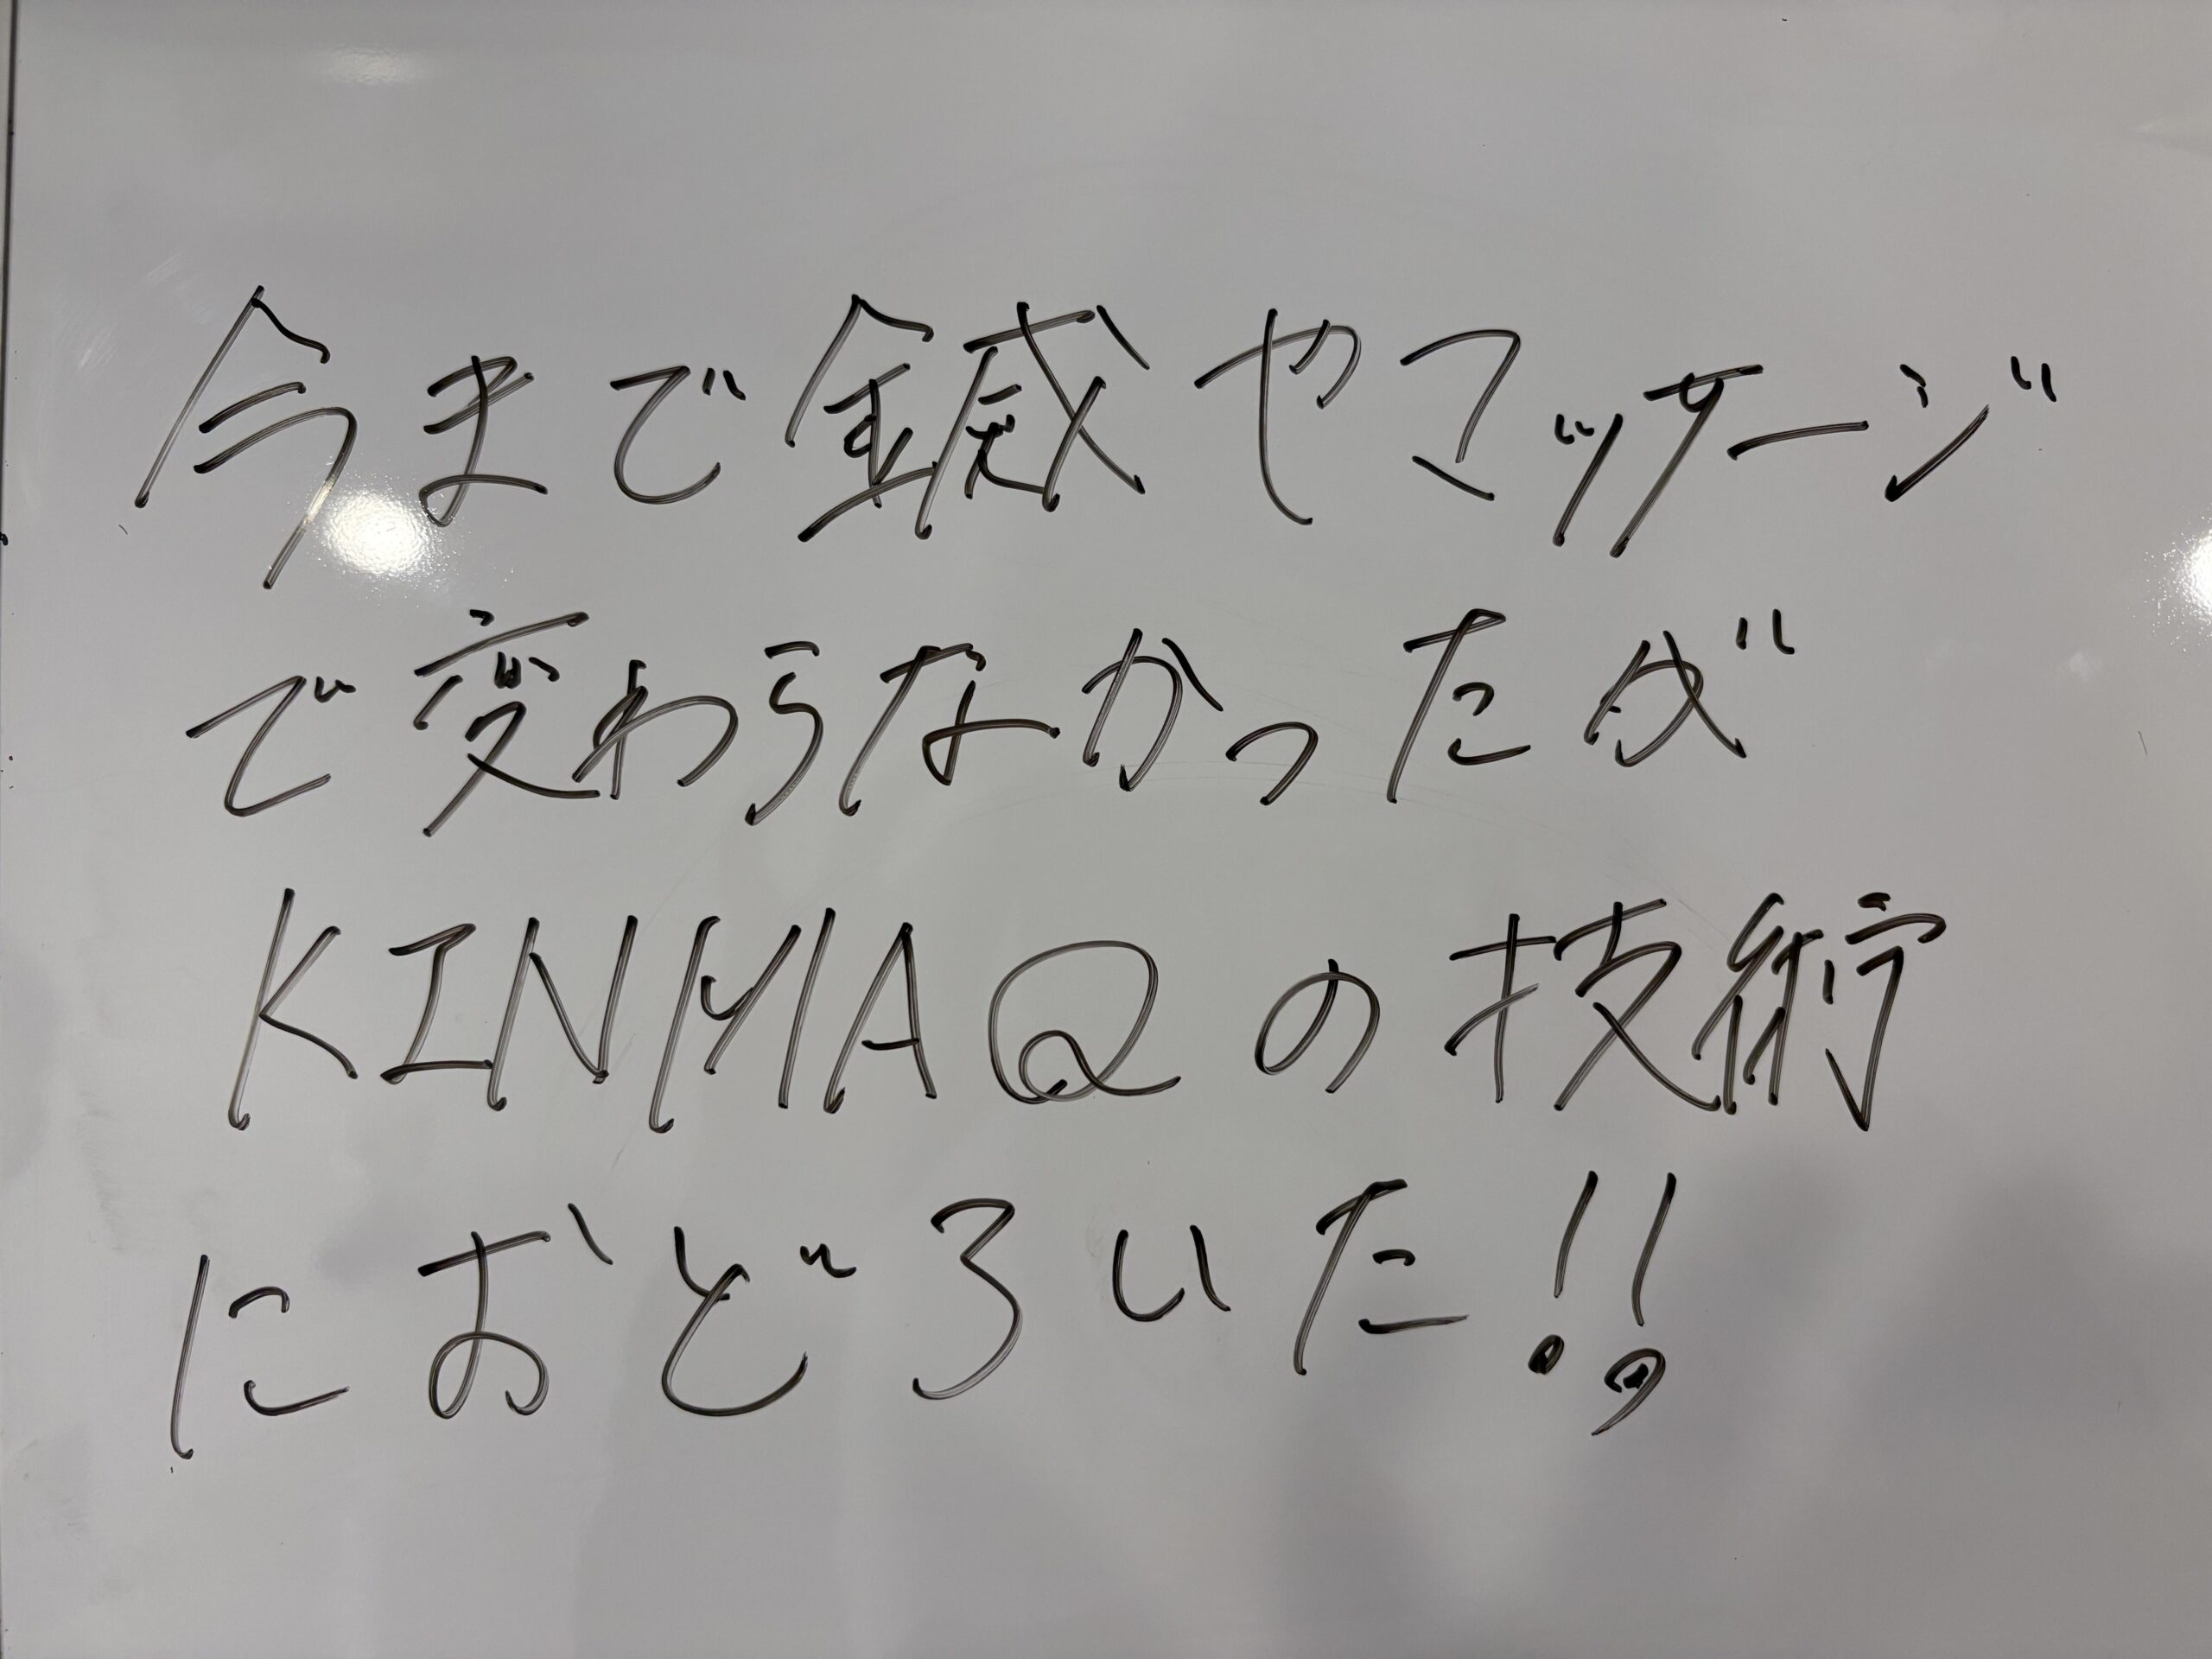 今まで鍼やマッサージ
で変わらなかったが
KINMAQの技術
におどろいた!!